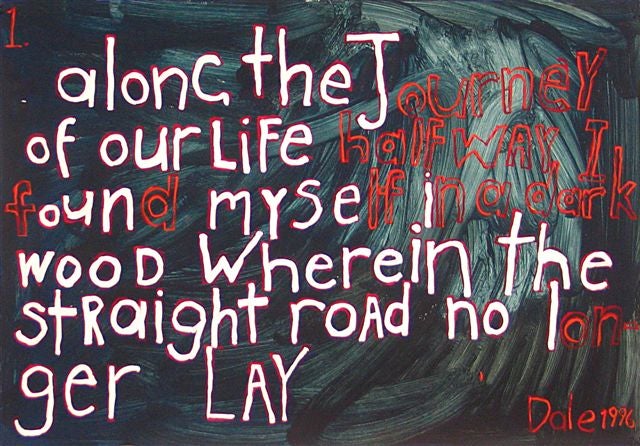 1.
alonG the Journey
of our LiFe halFWAY, I
found myself in a dark
wood wherein the
stRaight roAd no lon-
ger LAY
Dale 1996